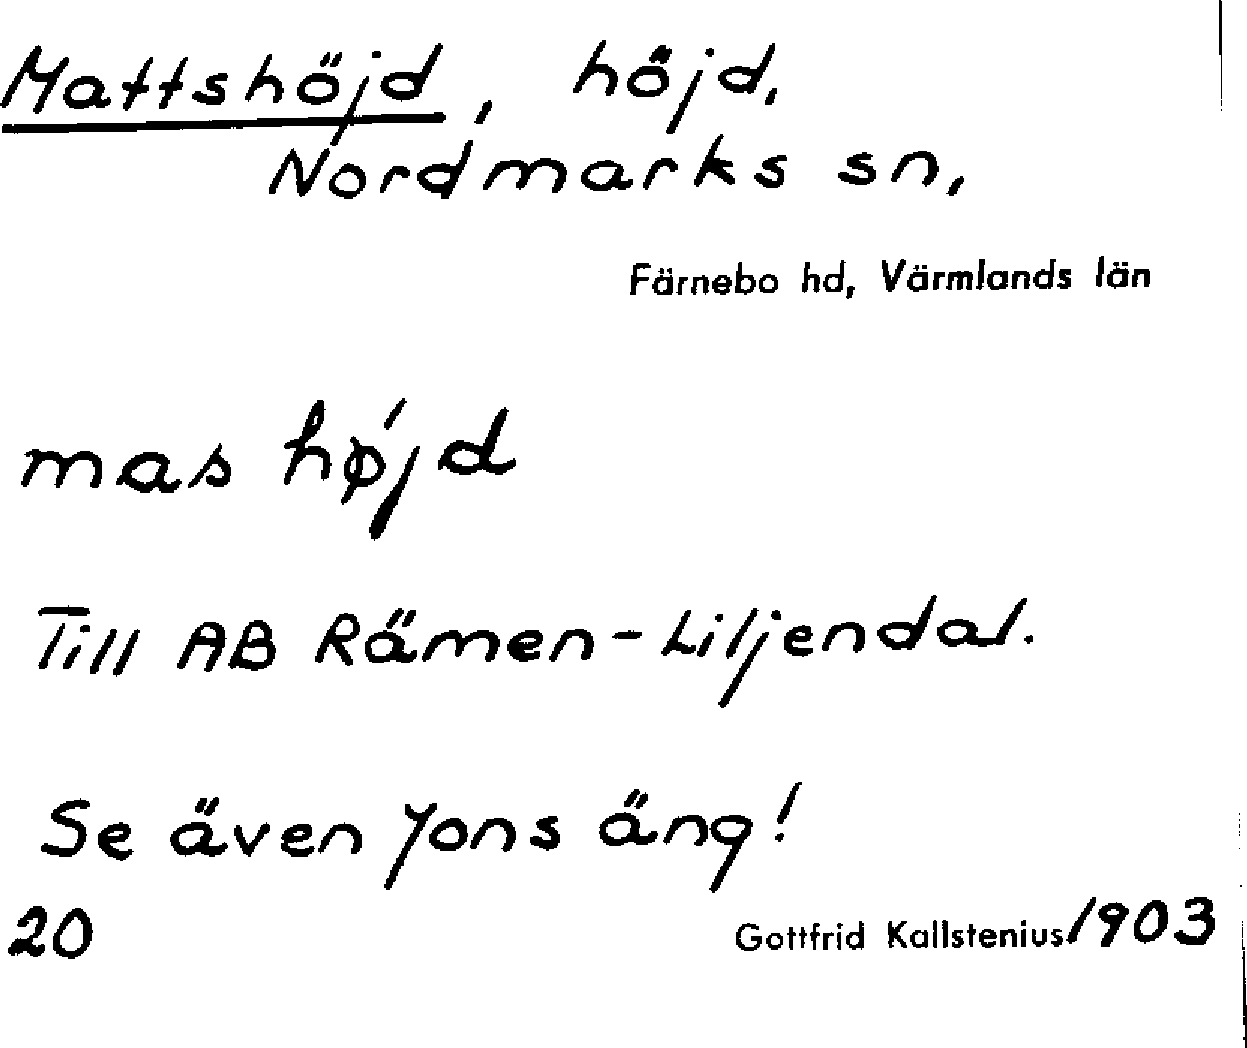 Mattshöjd, höjd,
Nordmarks sn,
Färnebo hd, Värmlands län
mas hǿjd
Till AB Rämen-Liljendal.
Se även Jons äng!
20
Gottfrid Kallstenius/1903